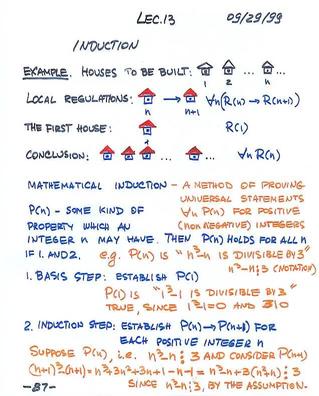 LEC.13 09/29/99
INDUCTION
EXAMPLE. HOUSES TO BE BUILT: 1 2 ... n ...
LOCAL REGULATIONS: n → n+1 ∀n(R(n) → R(n+1))
THE FIRST HOUSE: 1 R(1)
CONCLUSION: ... ... ∀n R(n)
MATHEMATICAL INDUCTION - A METHOD OF PROVING
UNIVERSAL STATEMENTS
P(n) - SOME KIND OF ∀n P(n) FOR POSITIVE
PROPERTY WHICH AN (NON NEGATIVE) INTEGERS
INTEGER n MAY HAVE. THEN P(n) HOLDS FOR ALL n
IF 1. AND 2. e.g. P(n) IS "n³-n IS DIVISIBLE BY 3"
n³-n⋮3 (NOTATION)
1. BASIS STEP: ESTABLISH P(1)
P(1) IS "1³-1 IS DIVISIBLE BY 3"
TRUE, SINCE 1³-1=0 AND 3|0
2. INDUCTION STEP: ESTABLISH P(n)→P(n+1) FOR
EACH POSITIVE INTEGER n
SUPPOSE P(n), i.e. n³-n⋮3 AND CONSIDER P(n+1)
(n+1)³-(n+1)=n³+3n²+3n+1-n-1=n³-n+3(n²+n)⋮3
-87- SINCE n³-n⋮3, BY THE ASSUMPTION.